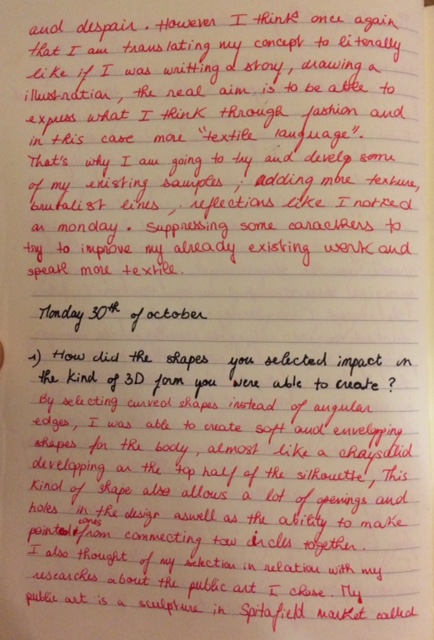 and despair. However I think once again
that I am translating my concept to literally
like if I was writting a story, drawing a
illustration, the real aim is to be able to
express what I think through fashion and
in this case more "textile language".
That's why I am going to try and develop some
of my existing samples; adding more texture,
brutalist lines, reflections like I noticed
on monday. Suppressing some caracthers to
try to improve my already existing work and
speak more textile.
Monday 30th of october
1) How did the shapes you selected impact on
the kind of 3D form you were able to create?
By selecting curved shapes instead of angular
edges, I was able to create soft and envelopping
shapes for the body, almost like a chrysalid
developping on the top half of the silhouette, This
kind of shape also allows a lot of openings and
holes in the design aswell as the ability to make
pointed cones from connecting tow circles together.
I also thought of my selection in relation with my
researches about the public art I chose. My
public art is a sculpture in Spitafield market called